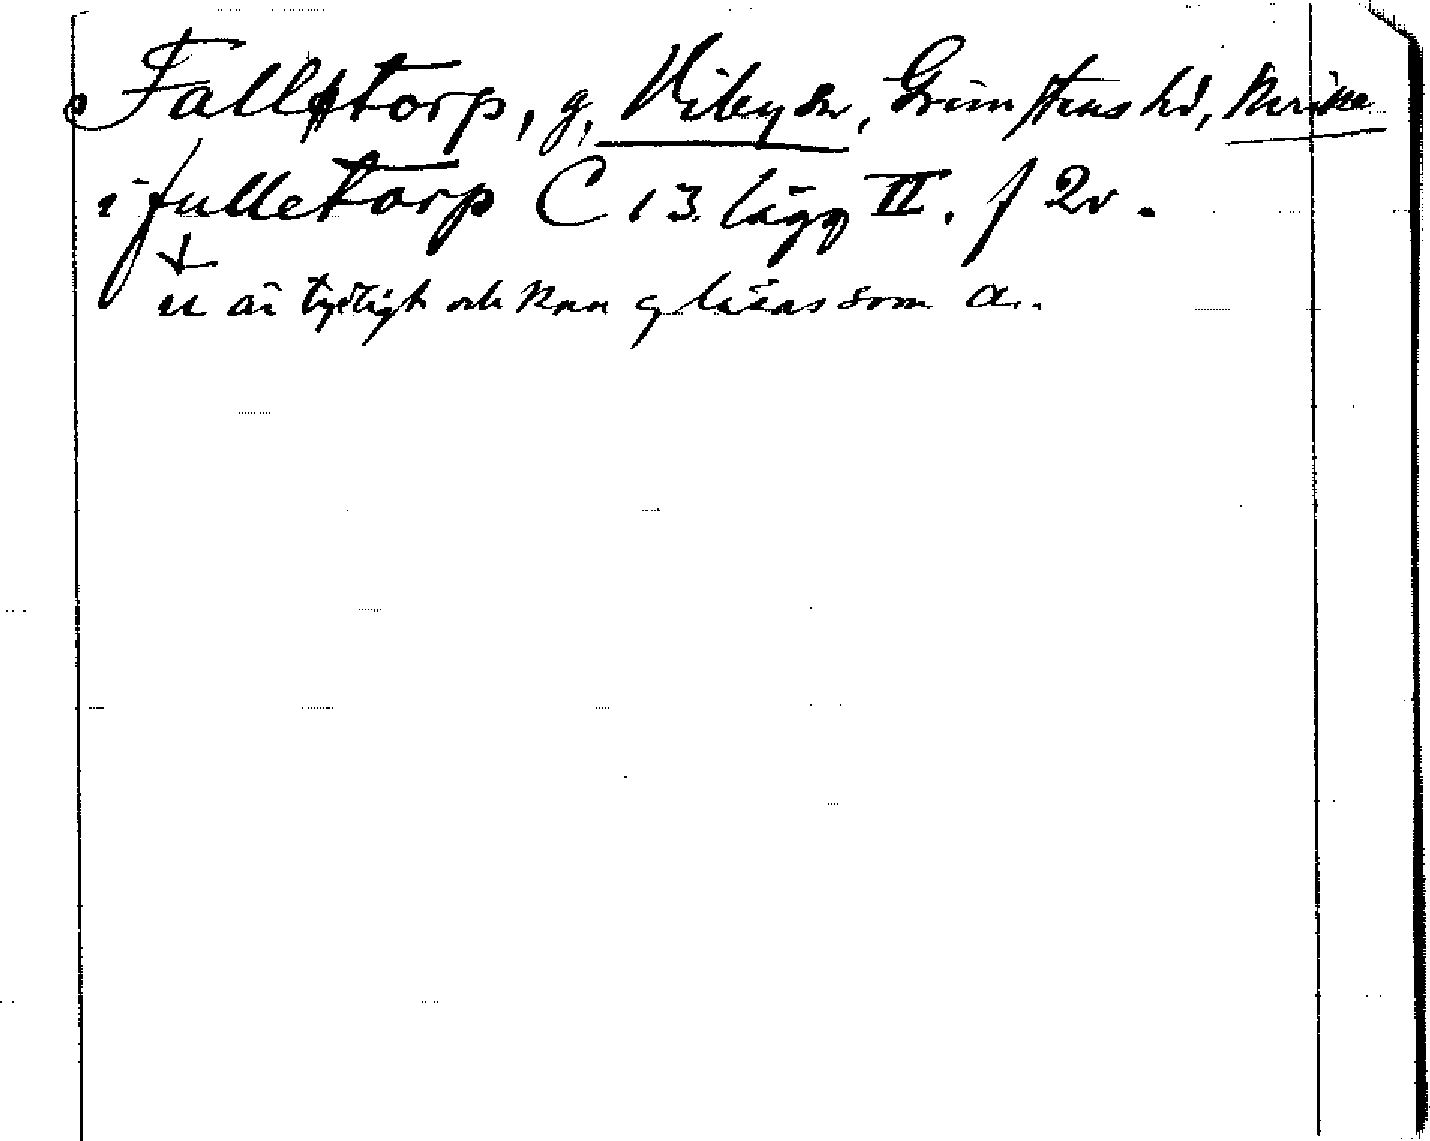 Fallstorp, g, Viby sn, Grimstens hd, Nerike
i fulletorp C 13 lägg II. f 2v.
u är tydligt och kan ej läsas som a.